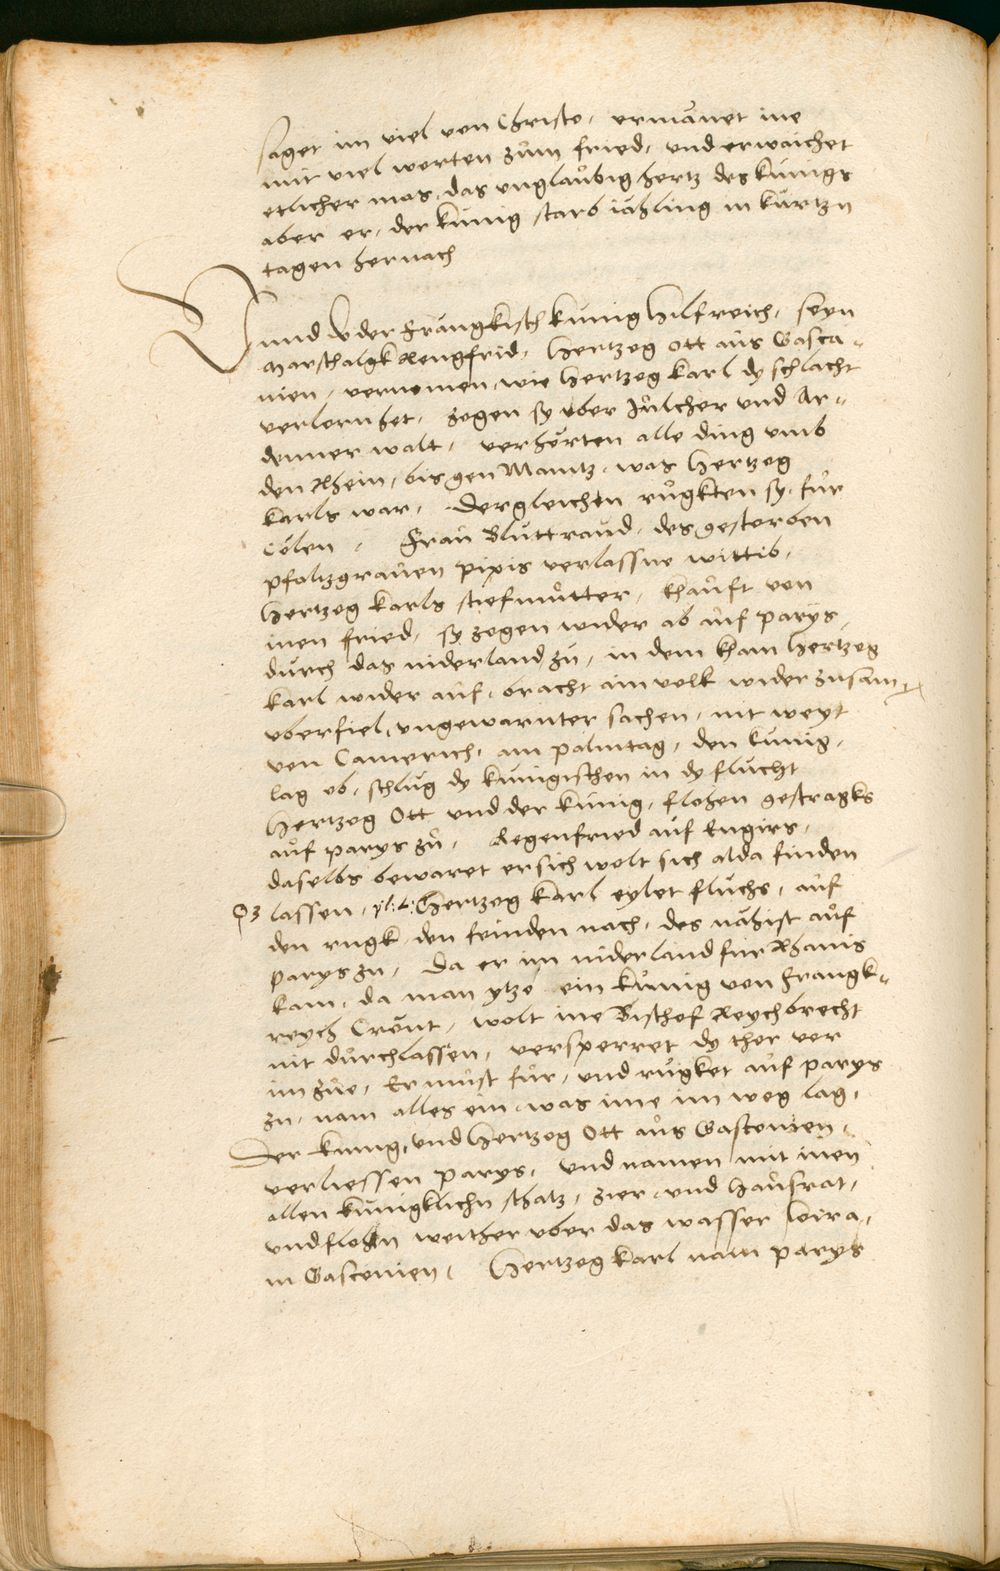 saget im viel von Christo, ermanet ine
mit viel worten zům fried, und erwaichet
etlicher mas, das unglaůbig hertz des kůnigs
aber er, der kůnig starb iähling in kůrtzn
tagen hernach
Unnd der Frängkisch kůnig Hilfreich, seyn
Marschalgk Rengfrid, Hertzog Ott aůs Gasca-
nien, vernomen, wie Hertzog Karl dy schlacht
verlorn het, zogen sy uber Jůlcher und Ar-
denner walt, verhörten alle ding umb
den Rhein, bis gen Maintz, was Hertzog
Karls war, dergleichen růgkten sy, fůr
Cölen, Fraů Blůttraůd, des gestorben
pfaltzgraůen pipis verlassne wittib,
Hertzog Karls stiefmůtter, khaůft von
inen fried, sy zogen wider ab aůf parijs,
důrch das niderland zů, in dem kham Hertzog
Karl wider aůf, bracht ain volk wider zusam
uberfiel, ungewarnter sachen, nit weyt
von Camerich, am palmtag, den kůnig,
lag ob, schlůg dy kůnigischen in dy flůcht
Hertzog Ott und der kůnig, flohen gestragks
aůf parys zů, Regenfried aůf Engirs,
daselbs bewaret er sich wolt sich alda finden
lassen, Hertzog Karl eylet flůchs, aůf
den rugk den feinden nach, des nähist aůf
parys zu, da er im niderland fur Rhains
kam, da man ytzo ein kůnig von Frangk-
reych Crönt, wolt ine Bischof Reychbrecht
nit důrchlassen, versperret dy thor vor
im zůe, Er můst fůr, und růgket aůf parys
zu, nam alles ein was ime im weg lag,
Der kunig, und Hertzog Ott aůs Gasconien,
verliessen parys, und namen mit inen
allen kůnigklichn schatz, zier und Haůsrat,
und flohen weither uber das wasser Loira,
in Gasconien, Hertzog Karl nam parys